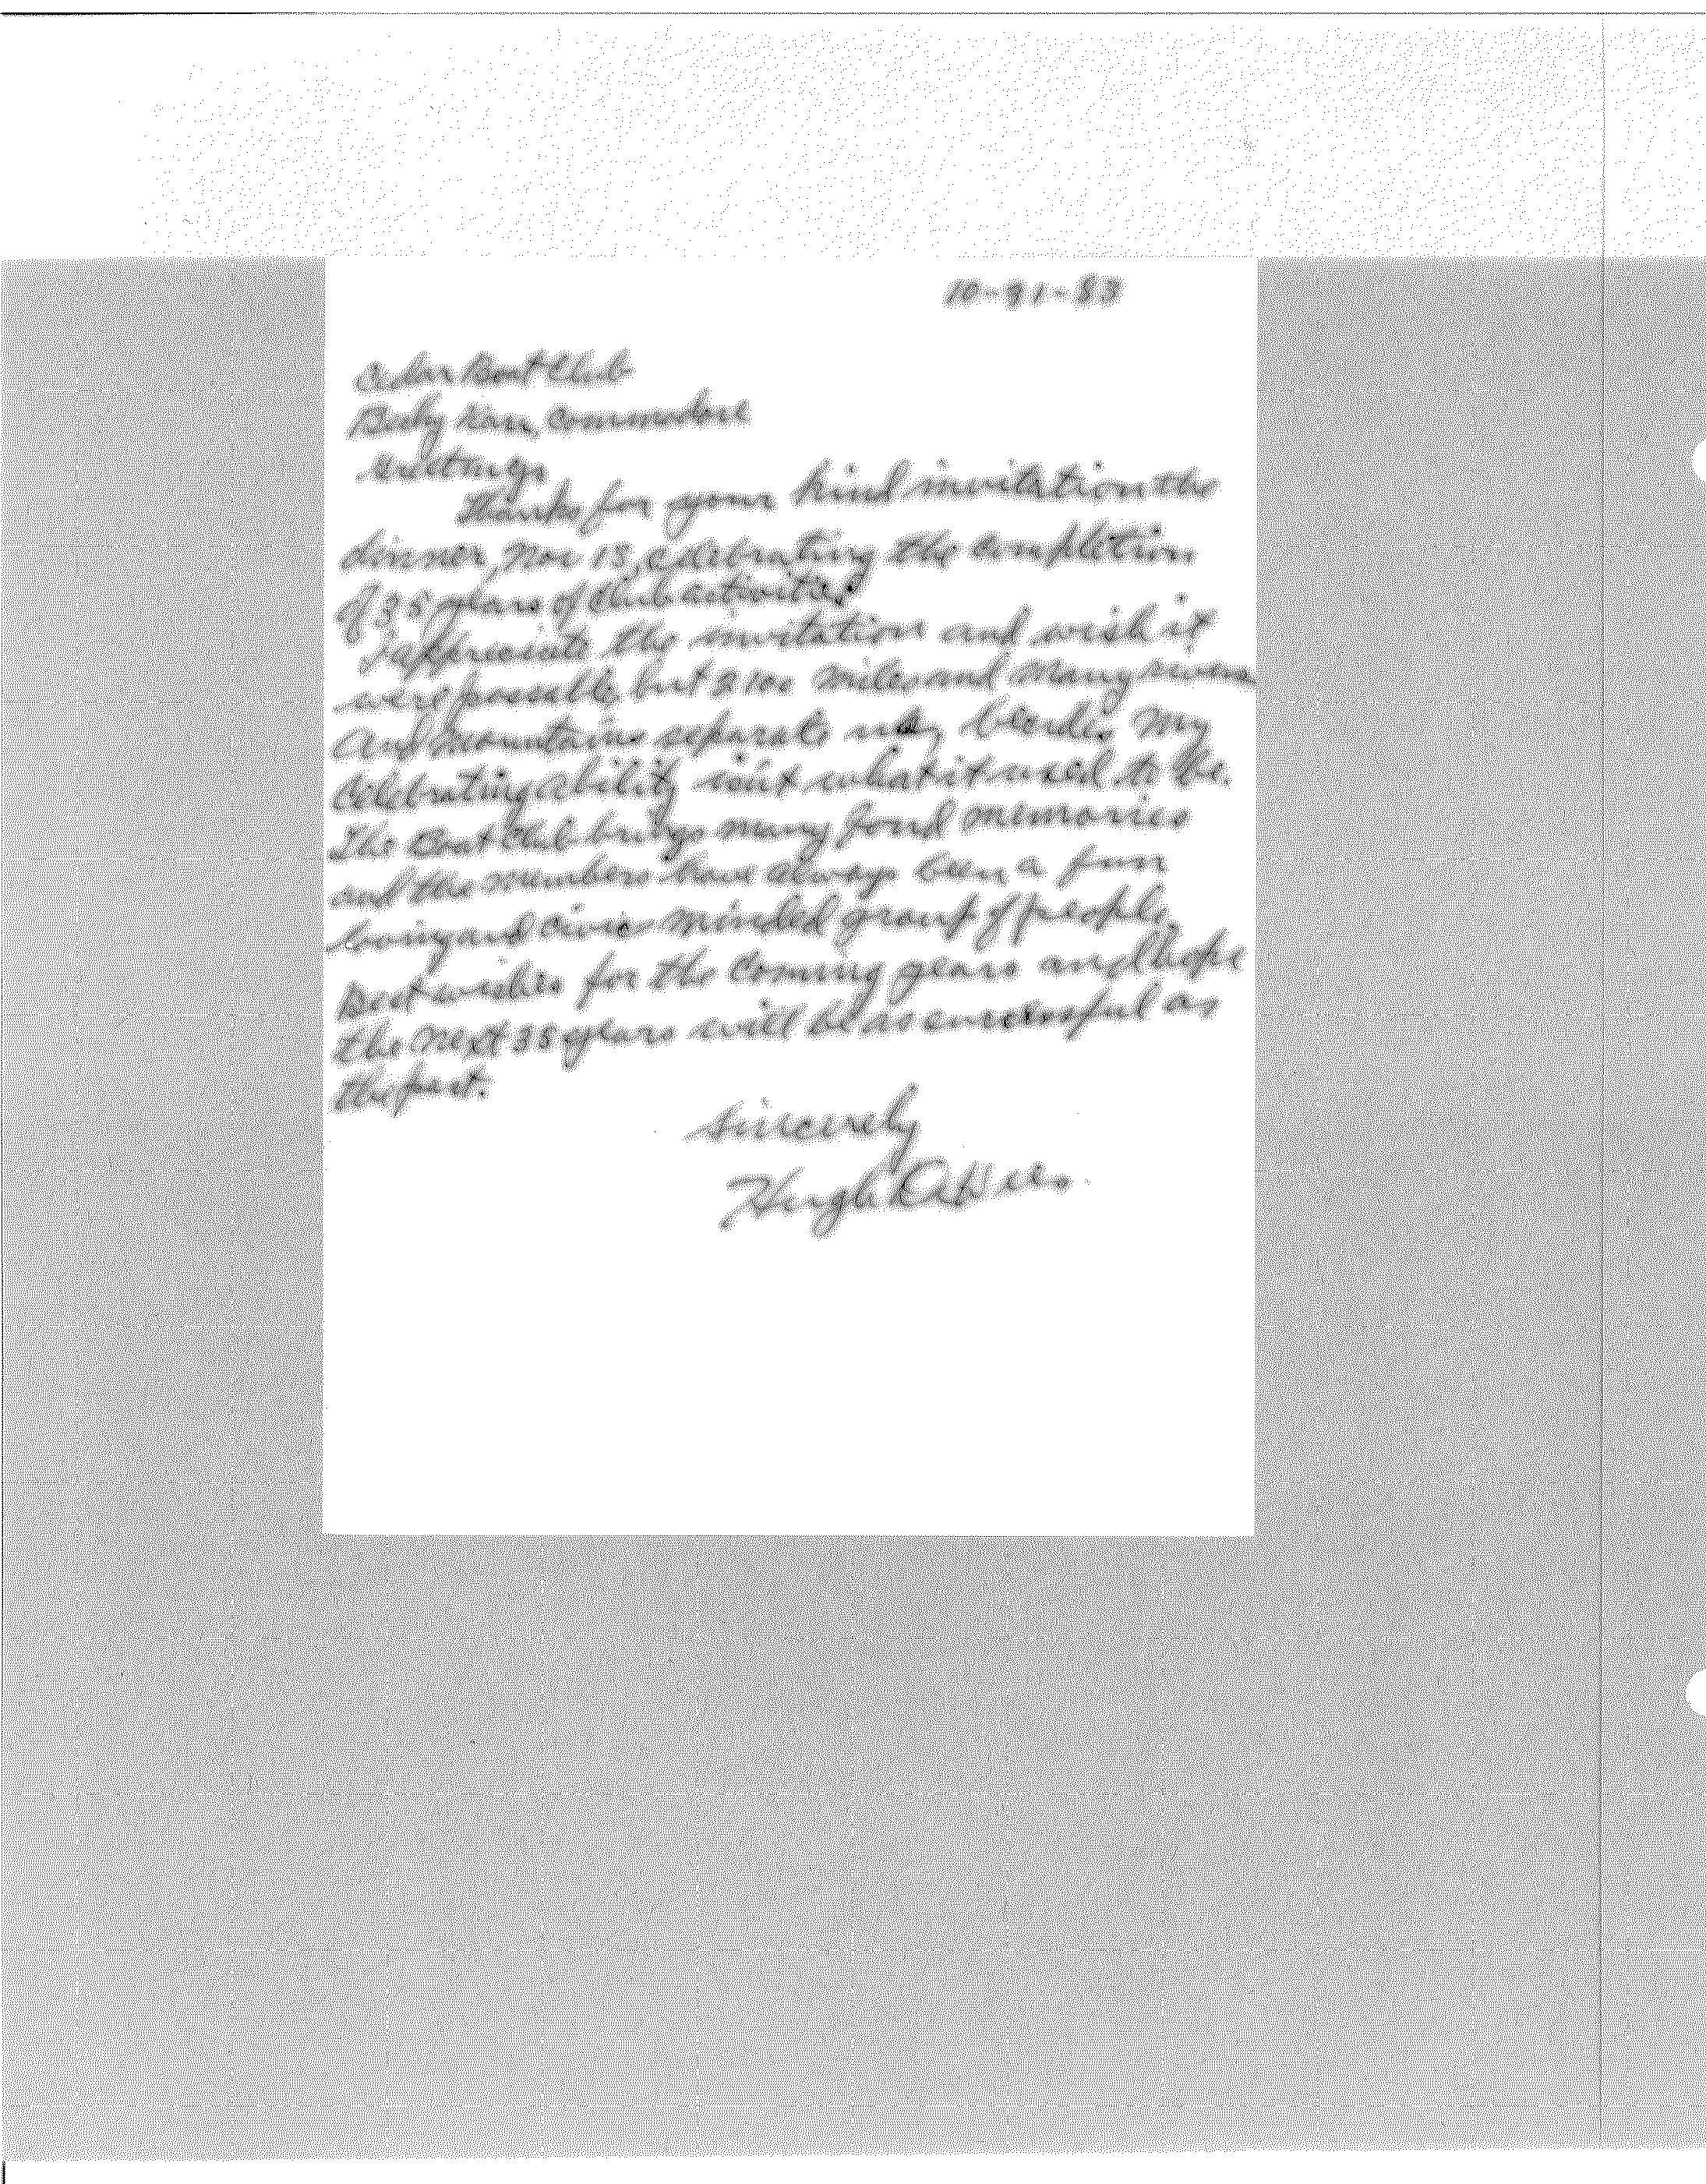 10-31-83
Cedar Boat Club
Commodore
Greetings
Thanks for your kind invitation the
dinner, Nov 13, celebrating the completion
of 35 years of Club activities.
I appreciate the invitation and wish it
were possible, but 2100 miles and many rivers
and mountains separate us, besides my
celebrating ability isn't what it used to be.
The Boat Club brings many fond memories
and the members have always been a fun
loving and civic minded group of people.
Best wishes for the coming years and hope
the next 35 years will be as successful as
the past.
Sincerely
Hugh